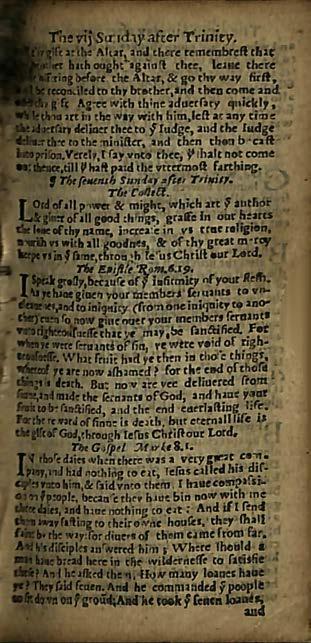 The vij Sunday after Trinity.
gift at the Altar, and there remembrest that
brother hath ought against thee, leaue there
offring before the Altar, & go thy way first,
be reconciled to thy brother, and then come and
thy gift Agree with thine aduersary quickly,
while thou art in the way with him, lest at any time
the aduersary deliuer thee to ẏ Iudge, and the Iudge
deliuer thee to the minister, and then thou b cast
into prison, Verely, I say vnto thee, ẏ shalt not come
out thence, till ẏ hast paid the vttermost farthing.
¶ The seuenth Sunday after Trinity.
The Collect.
LOrd of all power & might, which art ẏ author
& giuer of all good things, graffe in our hearts
the loue of thy name, increase in vs true religion,
nourish vs with all goodnes, & of thy great mercy
keepe vs in ẏ same, through Iesus Christ our Lord.
The Epistle Rom. 6.19.
I Speak grosly, because of ẏ Infirmity of your flesh.
As ye haue giuen your members seruants to vn-
cleannes, and to iniquity (from one iniquity to ano-
ther) euen so now giue ouer your members seruants
vnto righteousnesse that ye may, be sanctified. For
when ye were seruants of sin, ye were void of righ-
teousnesse. What fruit had ye then in those things,
whereof ye are now ashamed? for the end of those
things is death. But now are yee deliuered from
sinne, and made the seruants of God, and haue your
fruit to be sanctified, and the end euerlasting life.
For the reward of sinne is death, but eternall life is
the gift of God, through Iesus Christ our Lord.
The Gospel Marke 8.1.
IN those daies when there was a very great com-
pany, and had nothing to eat, Iesus called his dis-
ciples vnto him, & said vnto them. I haue compassi-
on on ẏ people, because they haue bin now with me
three daies, and haue nothing to eat: And if I send
them away fasting to their owne houses, they shall
faint by the way: for diuers of them came from far.
And his disciples answered him; Where should a
man haue bread here in the wildernesse to satisfie
these? And he asked them, How many loaues haue
ye? They said seuen. And he commanded ẏ people
to sit down on ẏ groūd; And he took ẏ seuen loaues,
and